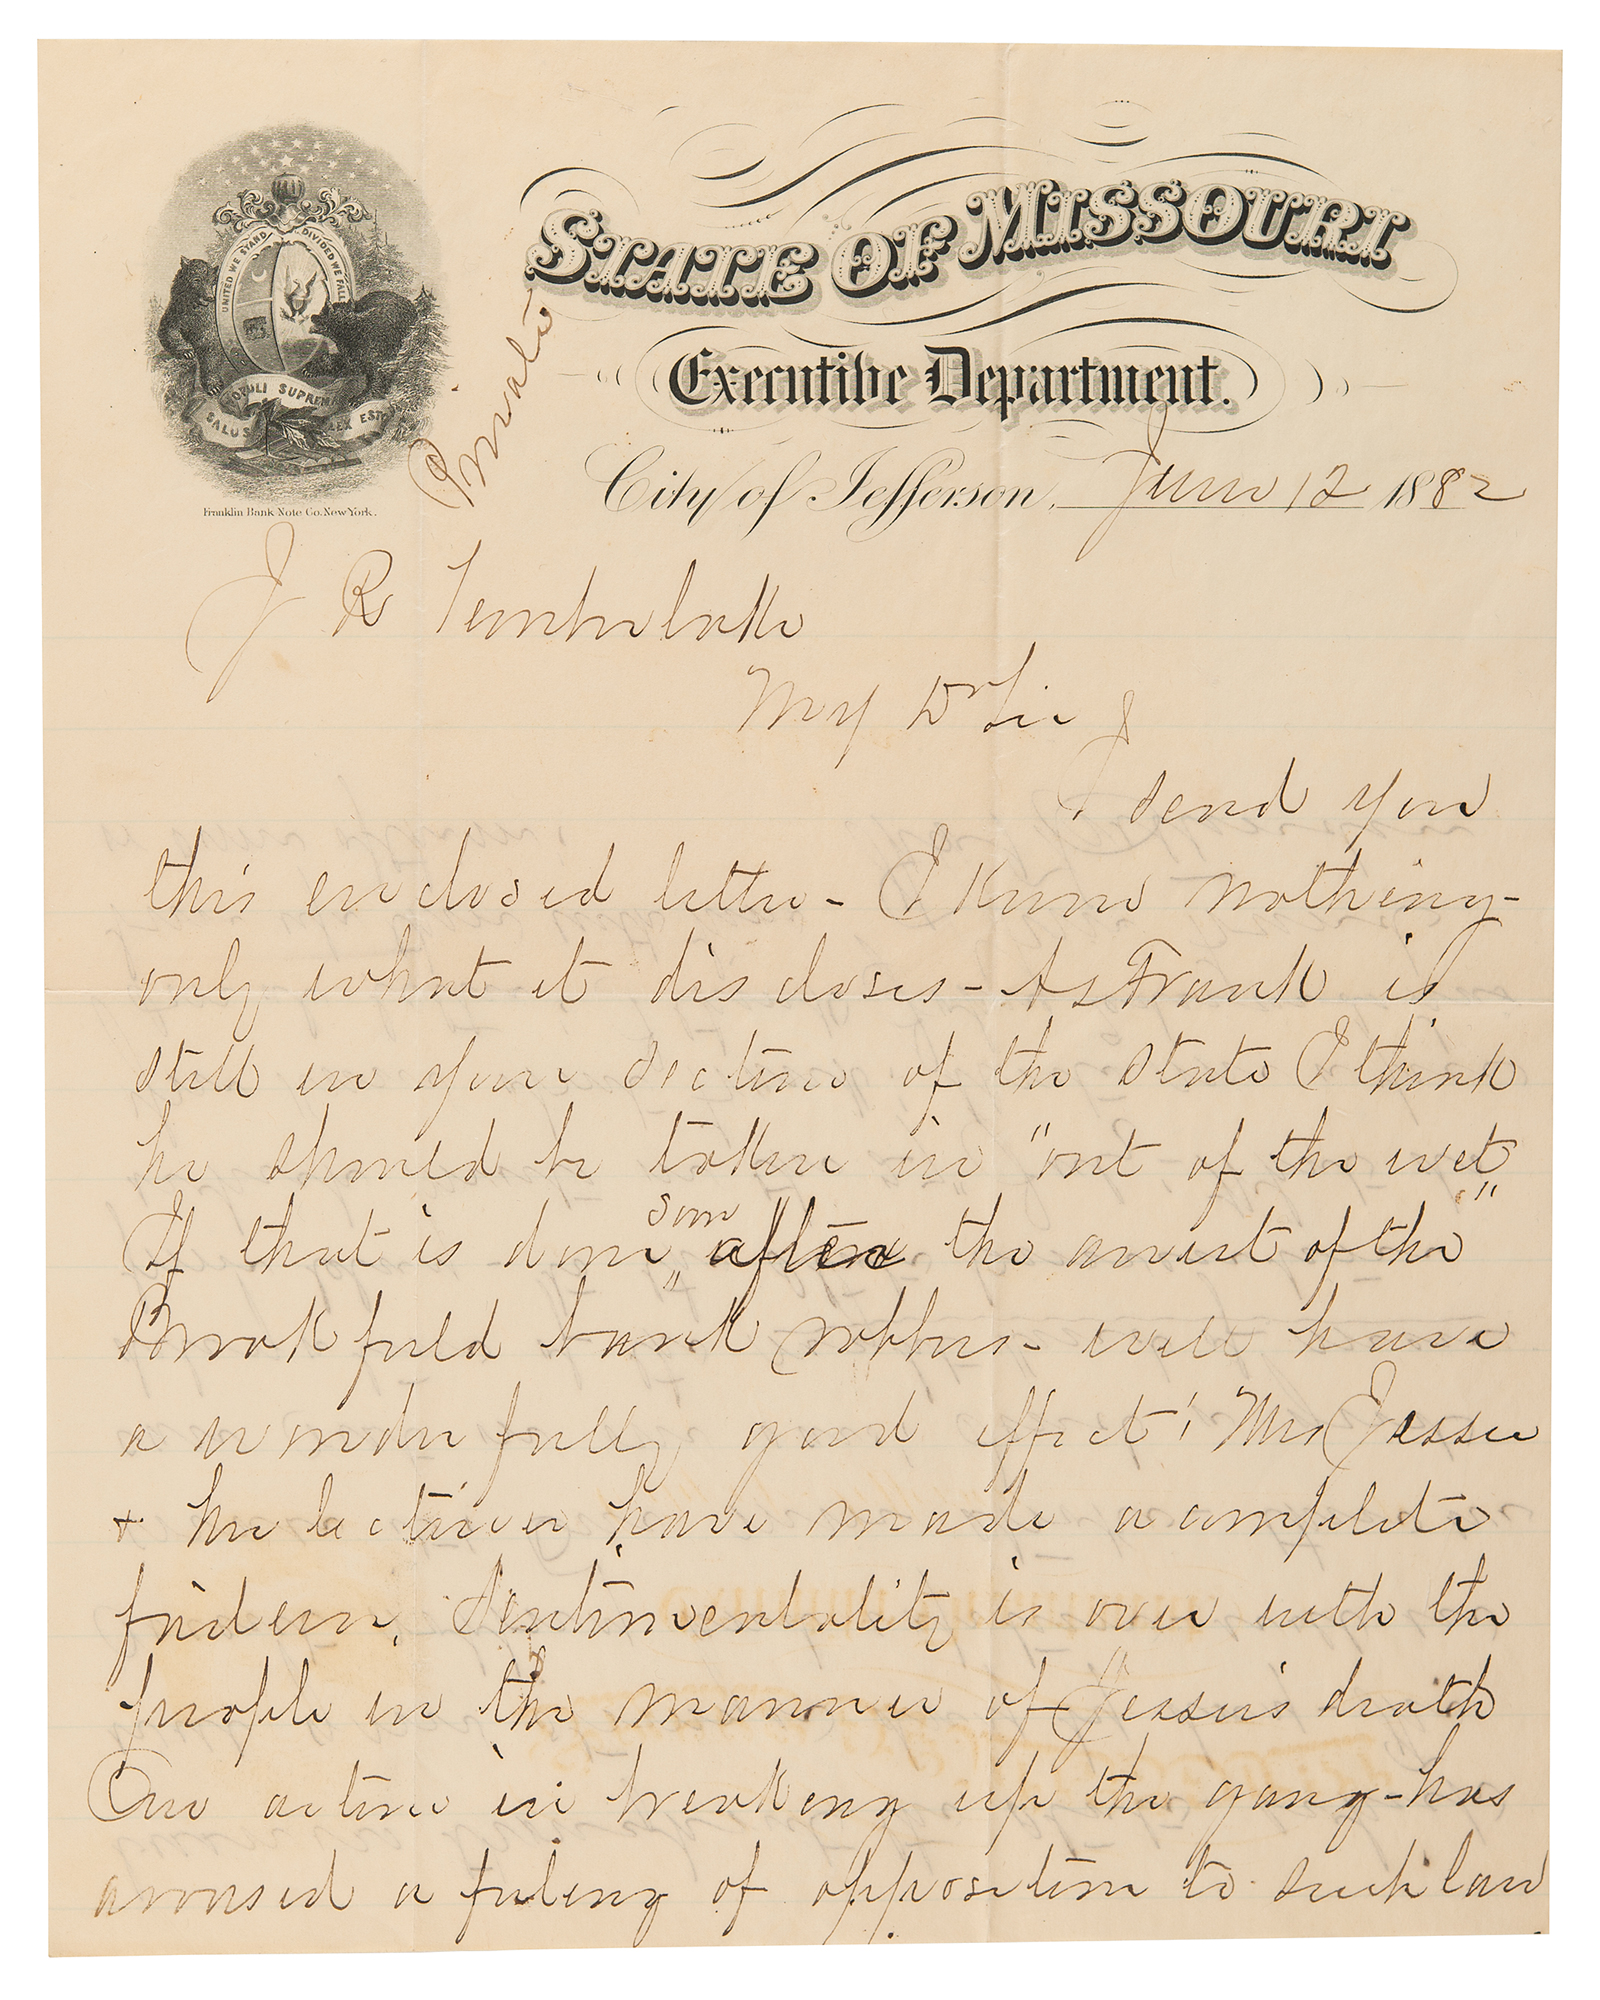 STATE OF MISSOURI
Executive Department.
UNITED WE STAND DIVIDED WE FALL
SALUS POPULI SUPREMA LEX ESTO
Franklin Bank Note Co. New York.
Private
City of Jefferson, June 12 1882
J R Timberlake
My Dr Sir
I send you
this enclosed letter - I know nothing -
only what it discloses - As Frank is
still in your section of the state I think
he should be taken in "out of the wet"
If that is done soon after the arrest of the
Brookfield bank robbers - will have
a wonderfully good effect! Mrs Jesse
& her lectures have made a complete
. Sentimentality is over with the
people in the manner of Jesse's death
Our action in breaking up the gang - has
aroused a feeling of opposition to such law